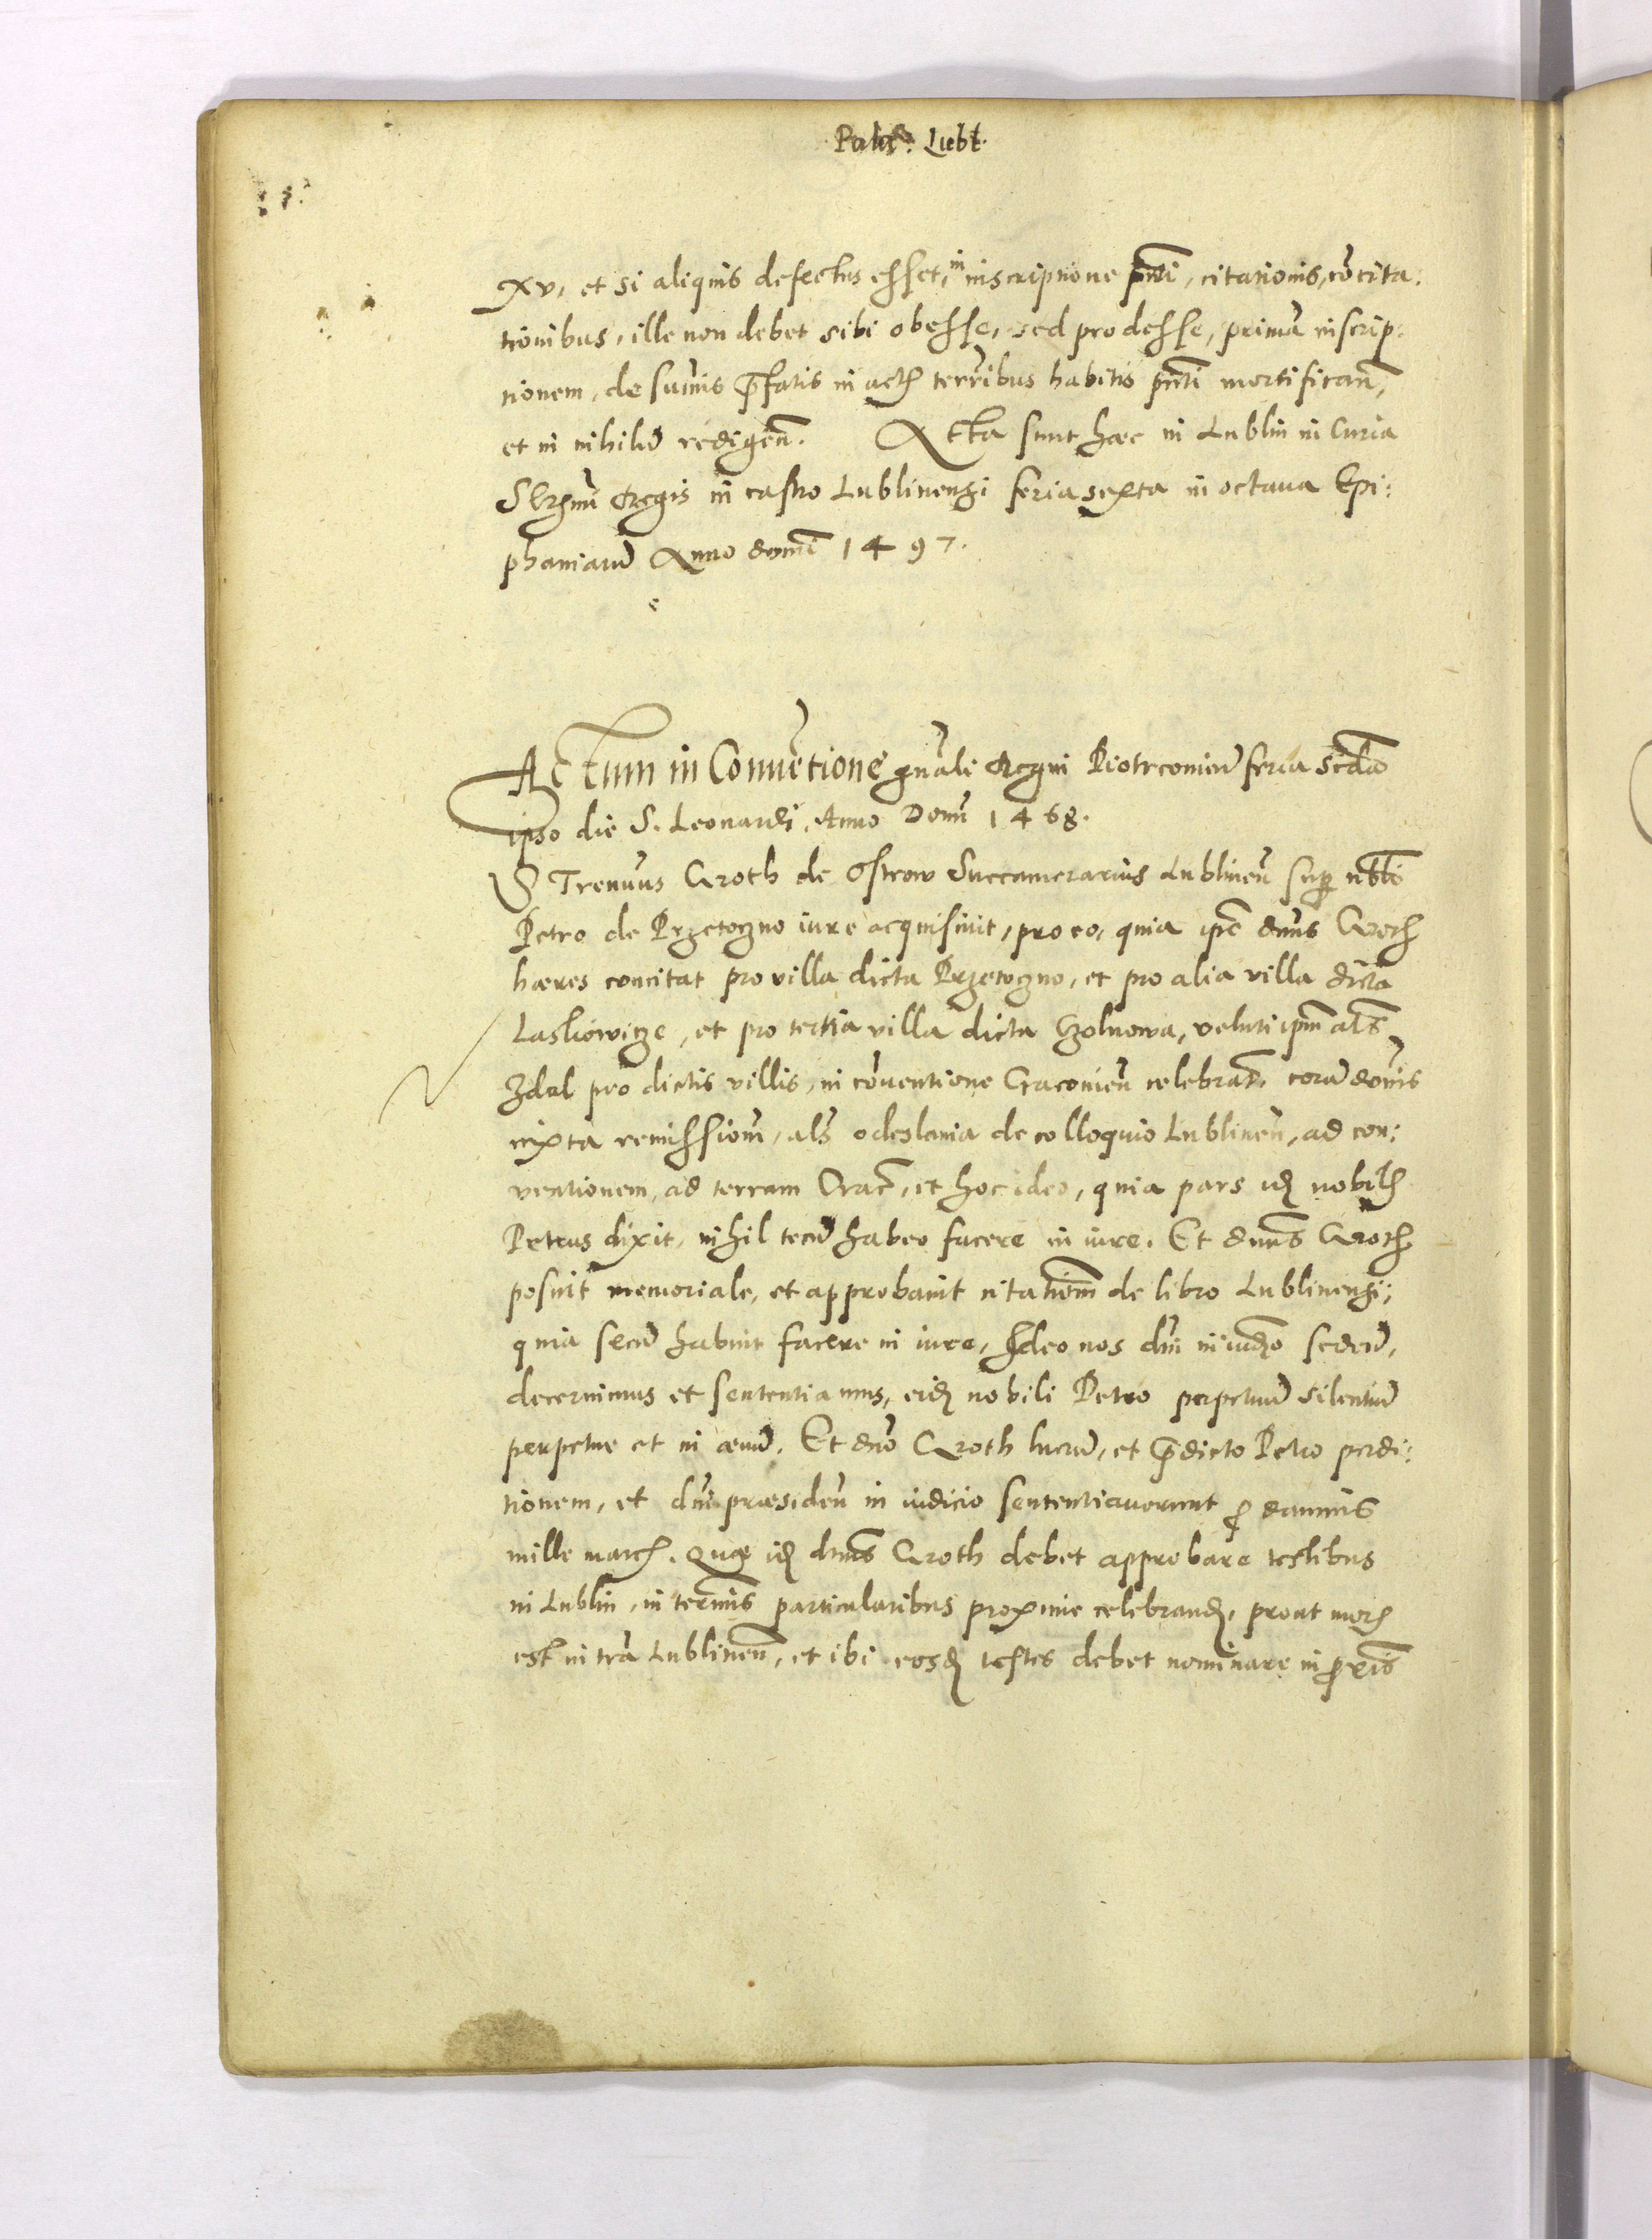 Palat. Lubl.
xv, et si aliquis defectus esset, in inscriptione pnti, citationis, cōcita:
tionibus, ille non debet sibi obesse, sed prodesse, primā inscrip:
tionem, de sumis p̄fatis in actis terrībus habitis pnti mortificañ,
et in nihilū redigeñ. Acta sunt hæc in Lublin in Curia
Sermī Regis in castro Lublinensi feria sexta in octaua Epi:
phaniarū Anno domī 1497.
Actum in Conuētione gn̄ali Regni Piotrcouieñ feria scdā
ipso die S. Leonardi, Anno Domī 1468.
Strenuus Groth de Ostrow Succamerarius Lublineñ sup nbli
Petro de Przetoczno iure acquisiuit, pro eo, quia ipē dnūs Groth
hæres concitat pro villa dicta Przetoczno, et pro alia villa dicta
Laskowicze, et pro tertia villa dicta Czolnowa, veluti ipm̄ als̄
Zdal pro dictis villis, in cōuentione Cracouieñ celebrat̄, corā domīs
iuxta remissionē, als̄ odeslania de colloquio Lublineñ, ad con:
uentionem, ad terram Crac̄, et hoc ideo, quia pars idē nobilis
Petrus dixit, nihil tecū habeo facere in iure. Et dnūs Groth
posuit memoriale, et approbauit citationē de libro Lublinensi,
quia secū habuit facere in iure, Ideo nos dnī in iudō sedeñ,
decernimus et sententiamus, eidē nobili Petro perpetuū silentiū
perpetue et in æuū. Et dnō Groth lucrū, et p̄dicto Petro perdi:
tionem, et dnī præsideñ in iudicio sententiauerunt p damnis
mille marcis. Quæ idē dnūs Groth debet approbare testibus
in Lublin, in termīs particularibus proxime celebrandis, prout moris
est in trā Lublineñ, et ibi eosdē testes debet nominare in proxīs